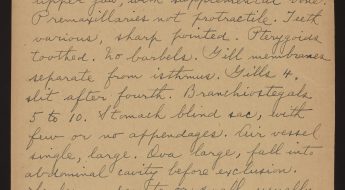 upper jaw, with supplemental bone.
Premaxillaries not protractile. Teeth
various, sharp pointed. Pterygoids
toothed. No barbels. Gill membranes
separate from isthmus. Gills 4.
slit after fourth. Branchiostegals
5 to 10. Stomach blind sac, with
few or no appendages. Air vessel
single, large. Ova large, fall into
abdominal cavity before exclusion.